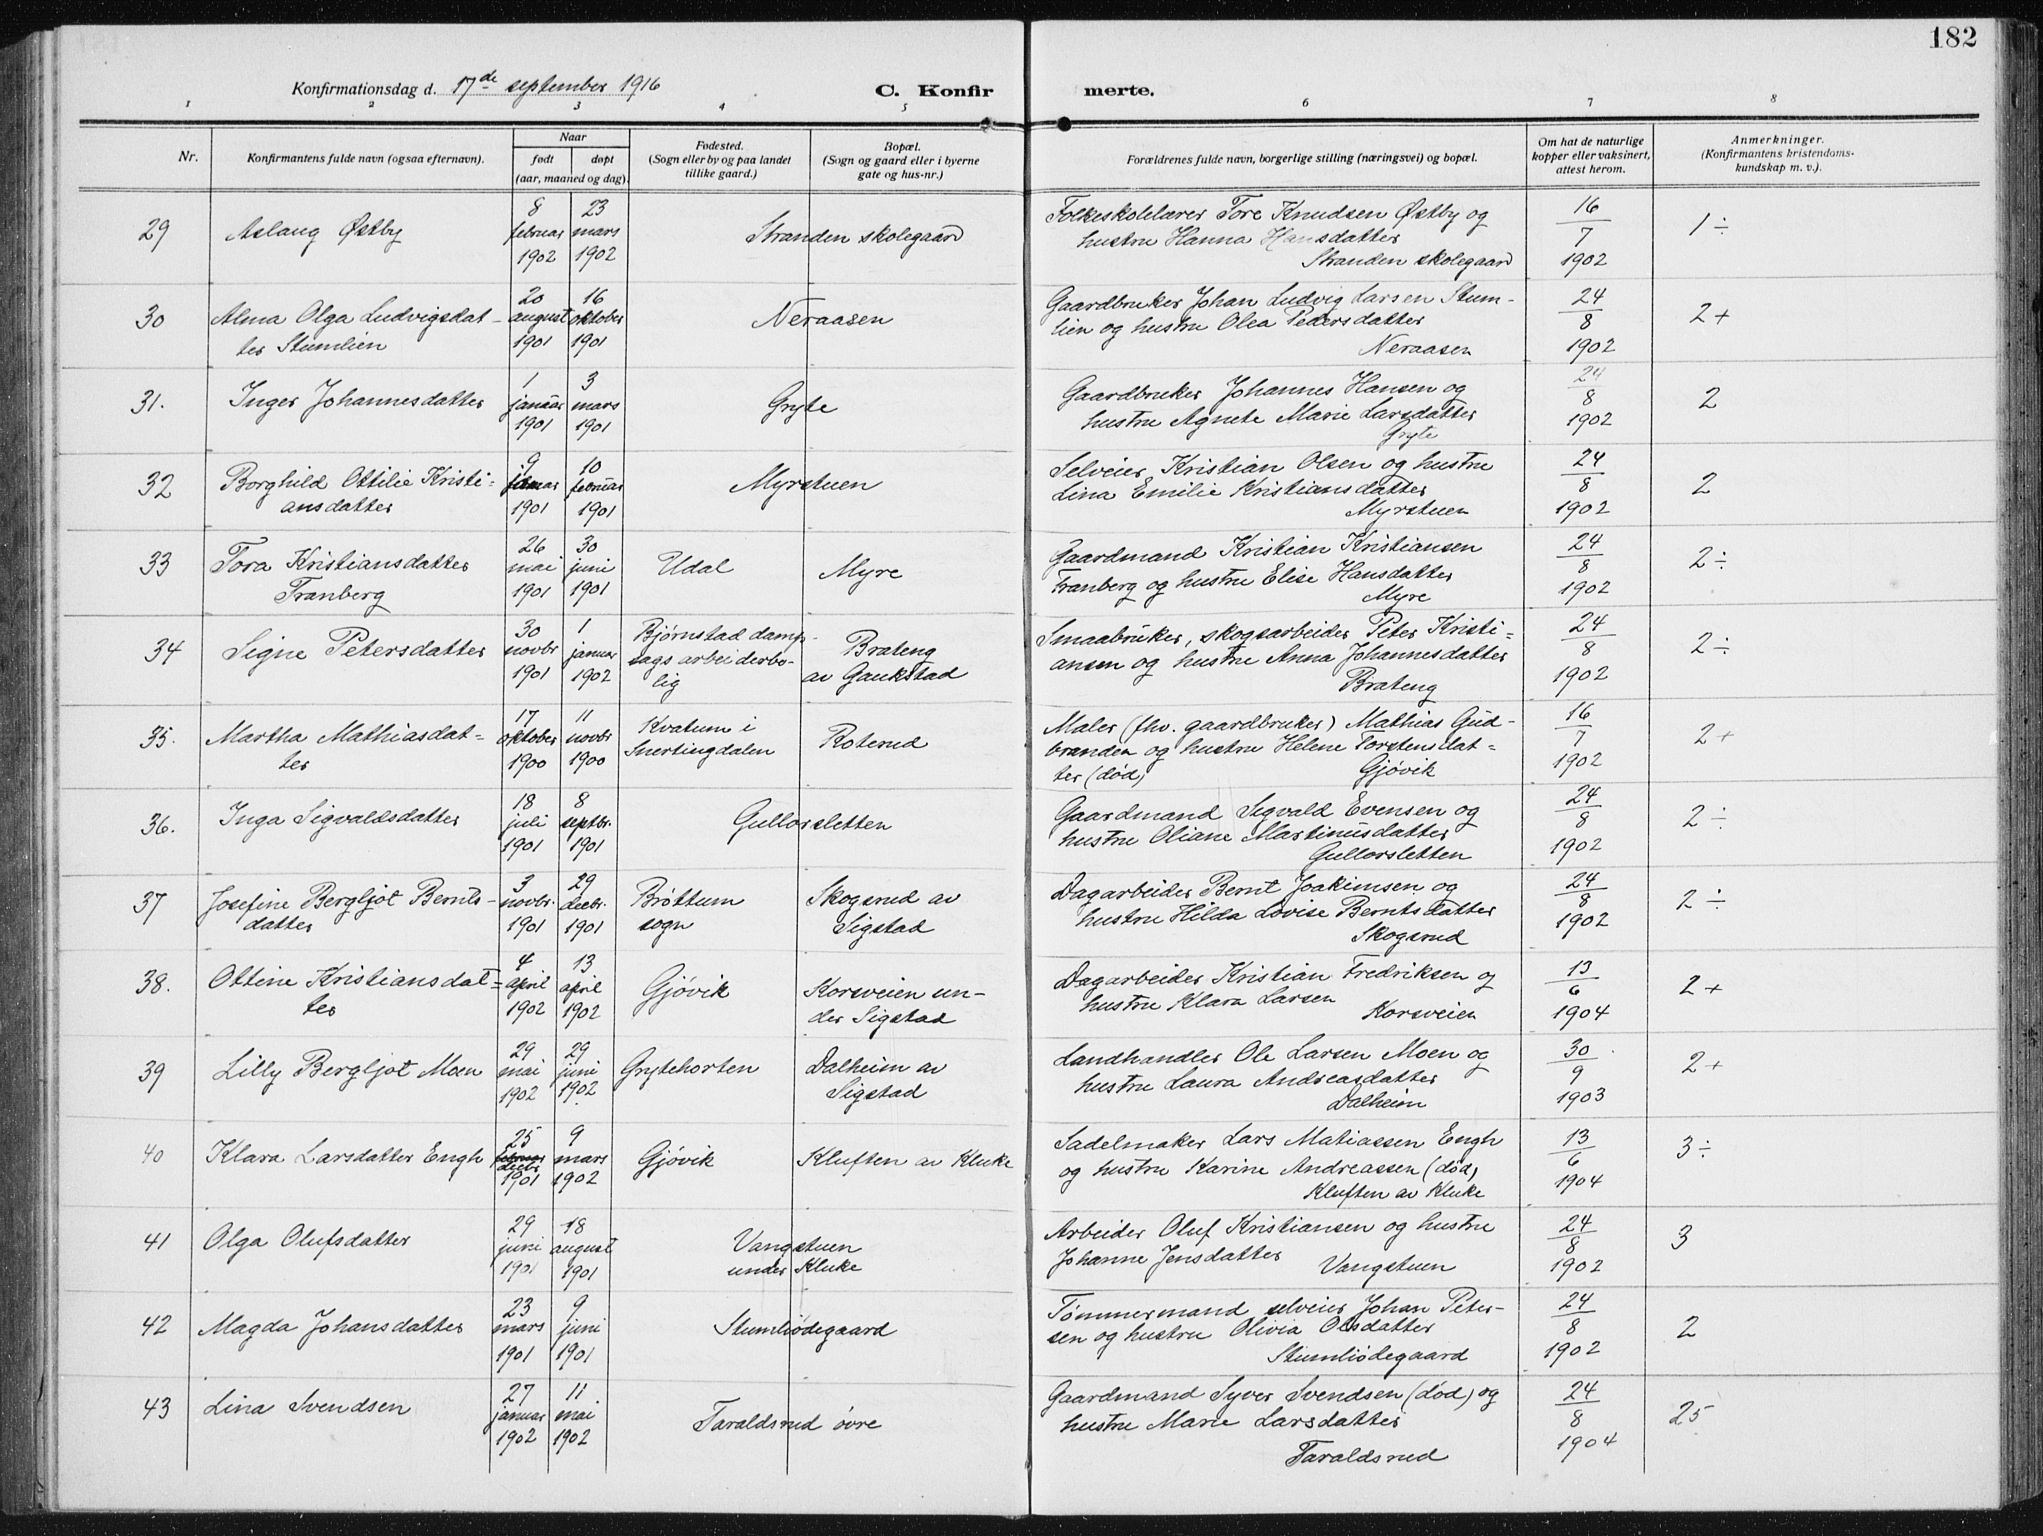 182
Konfirmationsdag d. 17de september 1916
C. Konfirmerte.
1 2 3 4 5 6 7 8
Nr.
Konfirmantens fulde navn (ogsaa efternavn).
Naar
født
døpt
(aar, maaned og dag).
Fødested.
(Sogn eller by og paa landet
tillike gaard.)
Bopæl.
(Sogn og gaard eller i byerne
gate og hus-nr.)
Forældrenes fulde navn, borgerlige stilling (næringsvei) og bopæl.
Om hat de naturlige
kopper eller vaksinert,
attest herom.
Anmerkninger.
(Konfirmantens kristendoms-
kundskap m. v.).
29 Aslaug Østby
8 februar 1902
23 mars 1902
Stranden skolegaard
Folkeskolelærer Tore Knudsen Østby og
hustru Hanna Hansdatter
Stranden skolegaard
16/7 1902
1 ÷
30 Alma Olga Ludvigsdat-
ter Stumlien
20 august 1901
16 oktober 1901
Neraasen
Gaardbruker Johan Ludvig Larsen Stum-
lien og hustru Olea Pedersdatter
Neraasen
24/8 1902
2 +
31. Inger Johannesdatter
1 januar 1901
3 mars 1901
Gryte
Gaardbruker Johannes Hansen og
hustru Agnete Marie Larsdatter
Gryte
24/8 1902
2
32 Borghild Ottilie Kristi=
ansdatter
9 januar 1901
10 februar 1901
Myrstuen
Selveier Kristian Olsen og hustru
Lina Emilie Kristiansdatter
Myrstuen
24/8 1902
2
33 Tora Kristiansdatter
Tranberg
26 mai 1901
30 juni 1901
Udal
Myre
Gaardmand Kristian Kristiansen
Tranberg og hustru Elise Hansdatter
Myre
24/8 1902
2 ÷
34 Signe Petersdatter
30 novbr 1901
1 januar 1902
Bjørnstad damp-
sags arbeiderbo-
lig
Brateng
av Gaukstad
Smaabruker, skogsarbeider Peter Kristi=
ansen og hustru Anna Johannesdatter
Brateng
24/8 1902
2 ÷
35. Martha Mathiasdat=
ter
17 oktober 1900
11 novbr 1900
Kvatum i
Snertingdalen
Roterud
Maler (fhv. gaardbruker) Mathias Gud-
brandsen og hustru Helene Torstensdat=
ter (død)
Gjøvik
16/7 1902
2 +
36. Inga Sigvaldsdatter
18 juli 1901
8 septbr. 1901
Gullorsletten
Gaardmand Sigvald Evensen og
hustru Oliane Martinusdatter
Gullorsletten
24/8 1902
2 ÷
37 Josefine Bergljot Bernts-
datter
3 novbr. 1901
29 decbr. 1901
Brøttum
sogn
Skogsrud av
Sigstad
Dagarbeider Bernt Joakimsen og
hustru Hilda Lovise Berntsdatter
Skogsrud
24/8 1902
2 ÷
38. Ottine Kristiansdat=
ter
4 april 1902
13 april 1902
Gjøvik
Korsveien un-
der Sigstad
Dagarbeider Kristian Fredriksen og
hustru Klara Larsen
Korsveien
13/6 1904
2 +
39 Lilly Bergljot Moen
29 mai 1902
29 juni 1902
Grytehorten
Dalheim av
Sigstad
Landhandler Ole Larsen Moen og
hustru Laura Andreasdatter
Dalheim
30/9 1903
2 +
40 Klara Larsdatter Engh
25 februar decbr 1901
9 mars 1902
Gjøvik
Kluften av Kluke
Sadelmaker Lars Matiassen Engh
og hustru Karine Andreassen (død)
Kluften av Kluke
13/6 1904
3 ÷
41 Olga Olufsdatter
29 juni 1901
18 august 1901
Vangstuen
under Kluke
Arbeider Oluf Kristiansen og hustru
Johanne Jensdatter
Vangstuen
24/8 1902
3
42 Magda Johansdatter
23 mars 1901
9 juni 1901
Stumliødegaard
Tømmermand selveier Johan Peter-
sen og hustru Olivia Olsdatter
Stumliødegaard
24/8 1902
2
43 Lina Svendsen
27 januar 1902
11 mai 1902
Taraldsrud øvre
Gaardmand Syver Svendsen (død) og
hustru Marie Larsdatter
Taraldsrud
24/8 1904
25